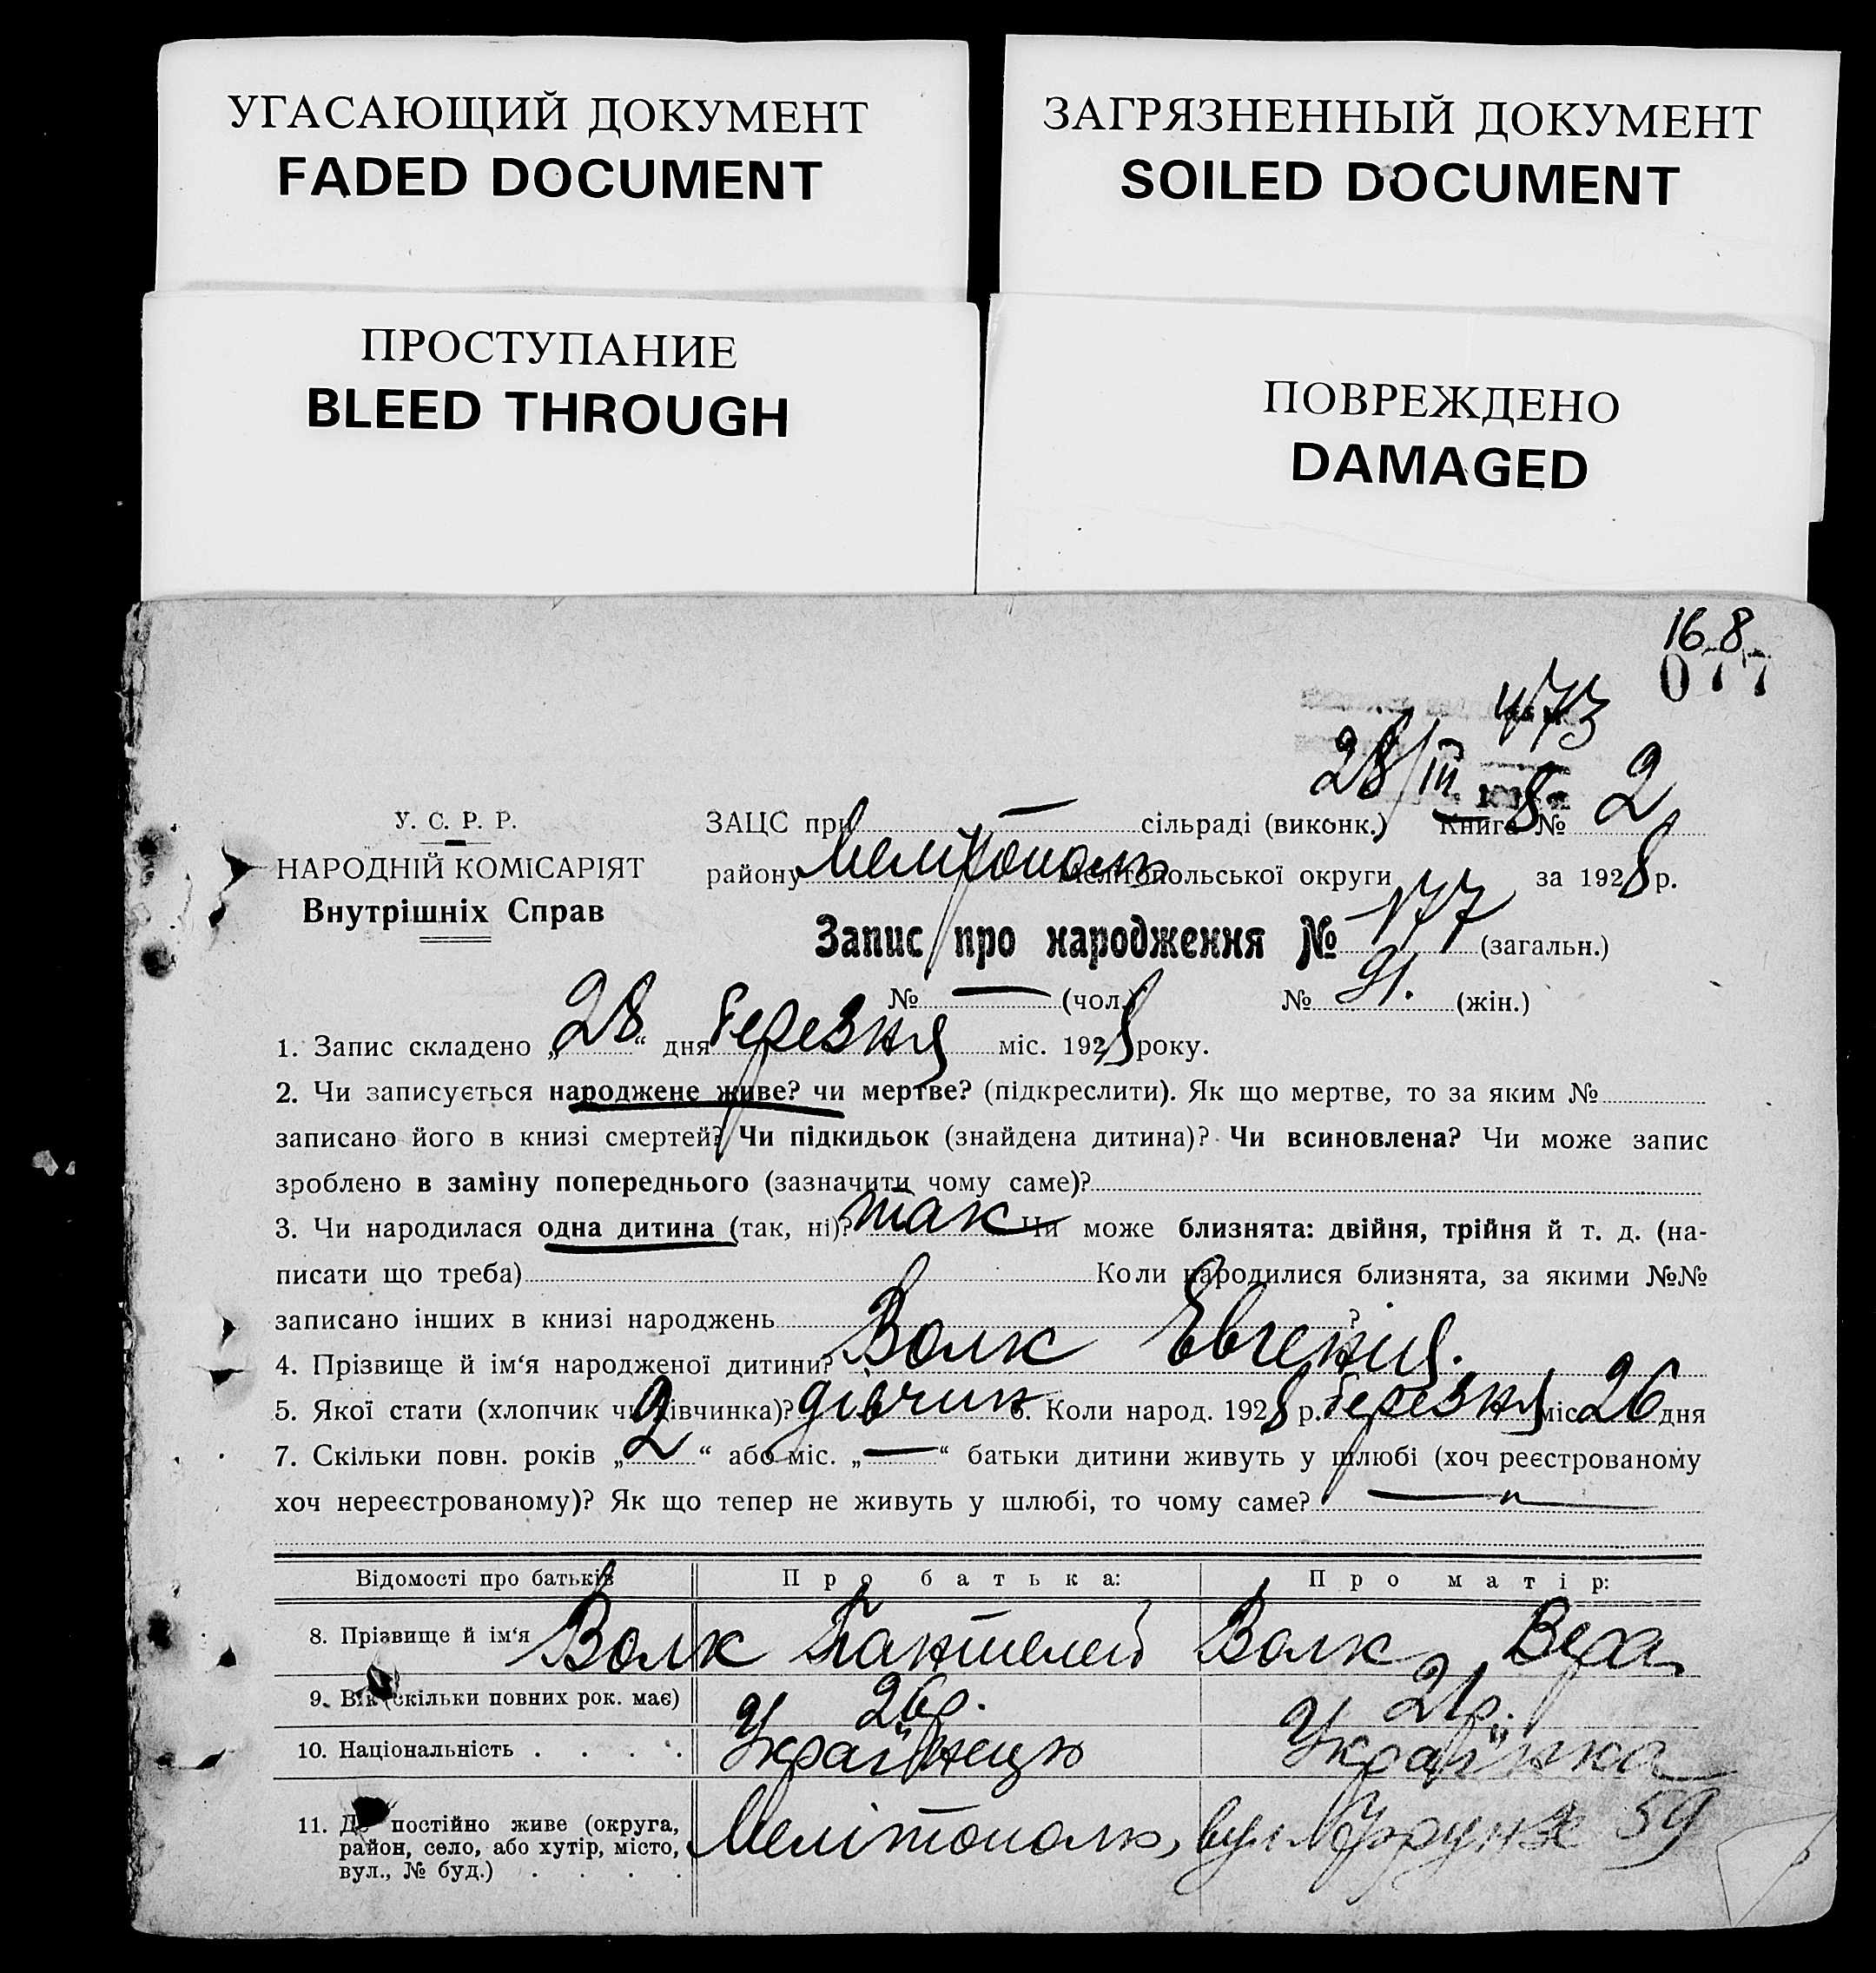 УГАСАЮЩИЙ ДОКУМЕНТ
FADED DOCUMENT
ЗАГРЯЗНЕННЫЙ ДОКУМЕНТ
SOILED DOCUMENT
ПРОСТУПАНИЕ
BLEED THROUGH
ПОВРЕЖДЕНО
DAMAGED
16 8
077
473
28/III 8
У. С. Р. Р.
НАРОДНІЙ КОМІСАРІЯТ
Внутрішніх Справ
ЗАЦС при — сільраді (виконк.) Книга № 2
району Мелітополь Мелітопольської округи за 1928 р.
Запис про народження № 177 (загальн.)
№ — (чол.) № 91. (жін.)
1. Запис складено „28“ дня березня міс. 1928 року.
2. Чи записується народжене живе? чи мертве? (підкреслити). Як що мертве, то за яким №
записано його в книзі смертей? Чи підкидьок (знайдена дитина)? Чи всиновлена? Чи може запис
зроблено в заміну попереднього (зазначити чому саме)?
3. Чи народилася одна дитина (так, ні)? так Чи може близнята: двійня, трійня й т. д. (на-
писати що треба) Коли народилися близнята, за якими №№
записано інших в книзі народжень ?
4. Прізвище й ім‘я народженої дитини? Волк Евгенія.
5. Якої стати (хлопчик чи дівчинка)? дівчин 6. Коли народ. 1928 р. березня міс 26 дня
7. Скільки повн. років „2“ або міс. „—“ батьки дитини живуть у шлюбі (хоч реєстрованому
хоч нереєстрованому)? Як що тепер не живуть у шлюбі, то чому саме? — „ —
Відомості про батьків Про батька: Про матір:
8. Прізвище й ім‘я Волк Пантелей Волк Вера
9. Вік (скільки повних рок. має) 26 р. 21 р.
10. Національність . . . . Українець Українка
11. Де постійно живе (округа,
район, село, або хутір, місто,
вул., № буд.) . . . .
Мелітополь, вул. Фрунзе 59